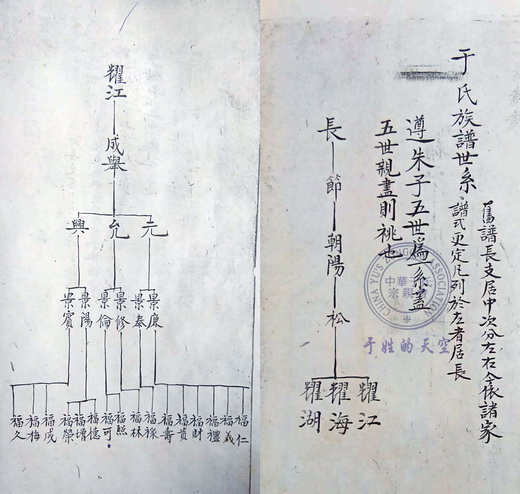 于氏族譜世系
舊譜長支居中次分左右今依諸家
譜式更定凡列於左者居長
遵朱子五世為一系蓋
五世親盡則祧也
長
節
朝陽
松
耀江
耀海
耀湖
于姓的天空
耀江
成舉
元
允
興
景康
景泰
景修
景倫
景陽
景賓
福仁
福義
福禮
福財
福貴
福壽
福祿
福林
福照
福可
福德
福增
福榮
福成
福梅
福久